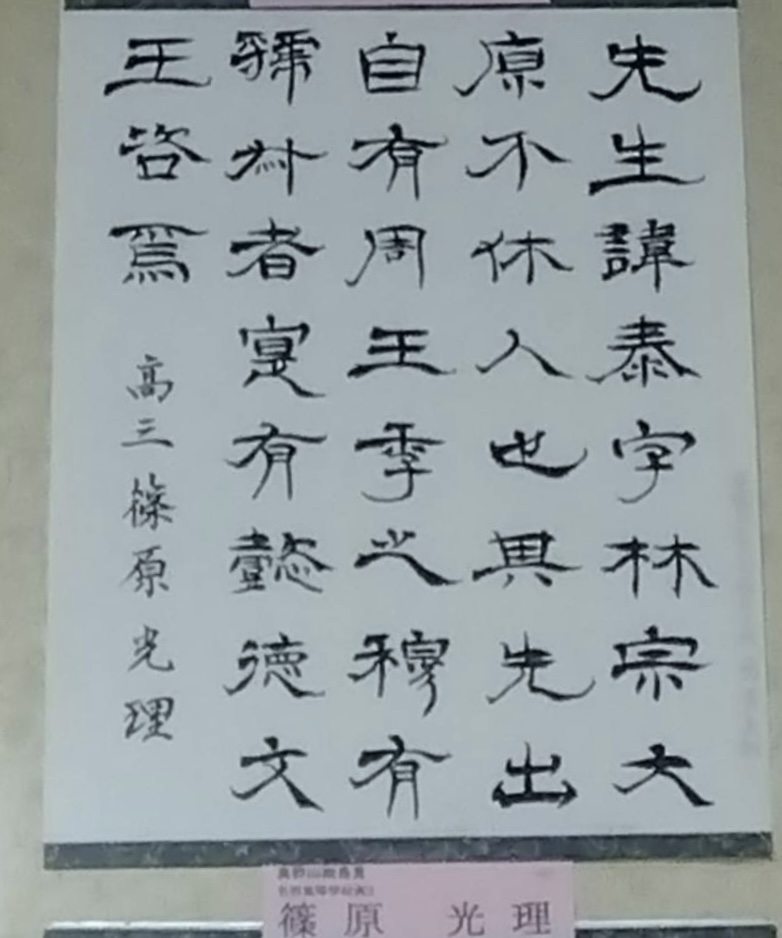 先生諱泰字林宗大
原介休人也其先出
自有周王季之穆有
虢叔者寔有懿德文
王咨焉 高三 篠原光理
篠原 光理